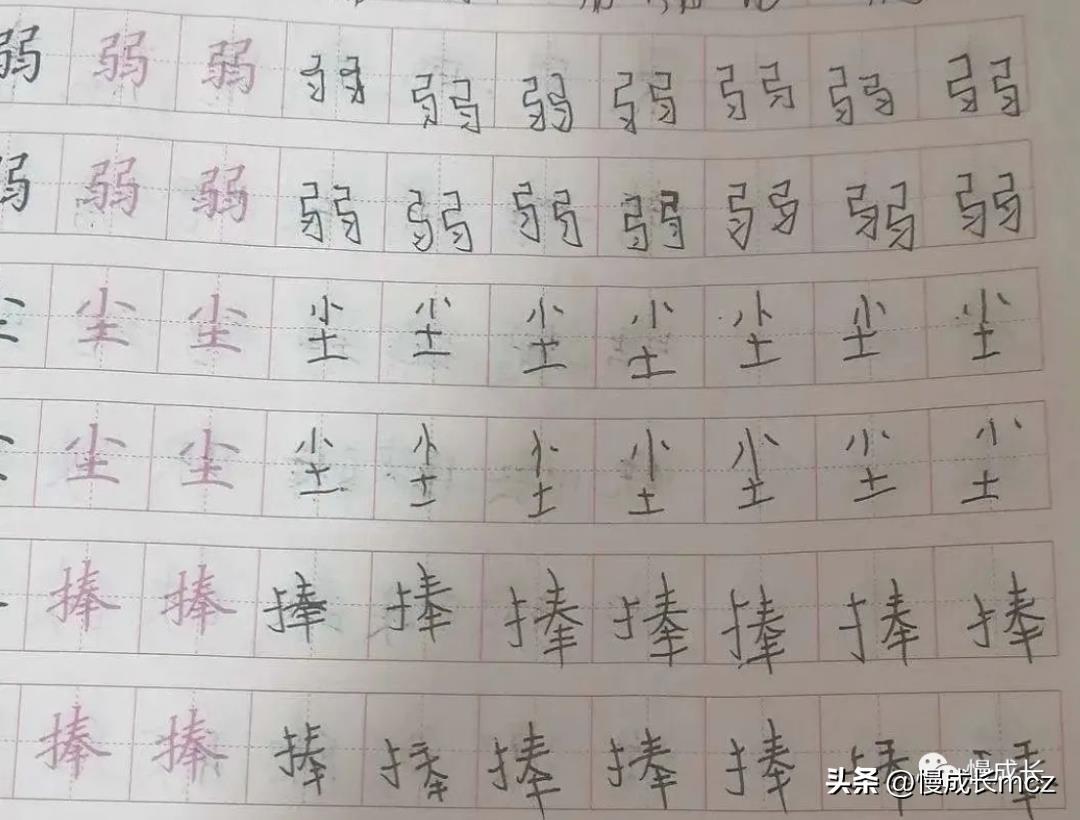 弱弱弱弱弱弱弱弱弱弱
弱弱弱弱弱弱弱弱弱弱
尘尘尘尘尘尘尘尘尘尘
尘尘尘尘尘尘尘尘尘尘
捧捧捧捧捧捧捧捧捧
捧捧捧捧捧捧捧捧捧
慢成长
头条 @慢成长mcz